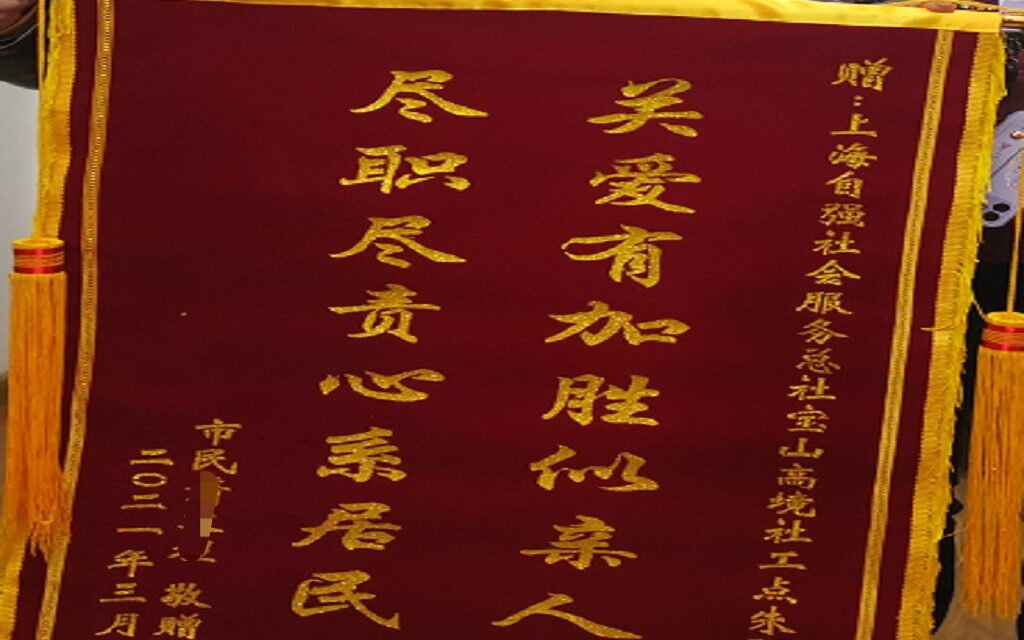 赠:上海自强社会服务总社宝山高境社工点朱
关爱有加胜似亲人
尽职尽责心系居民
市民 敬赠
二〇二一年三月